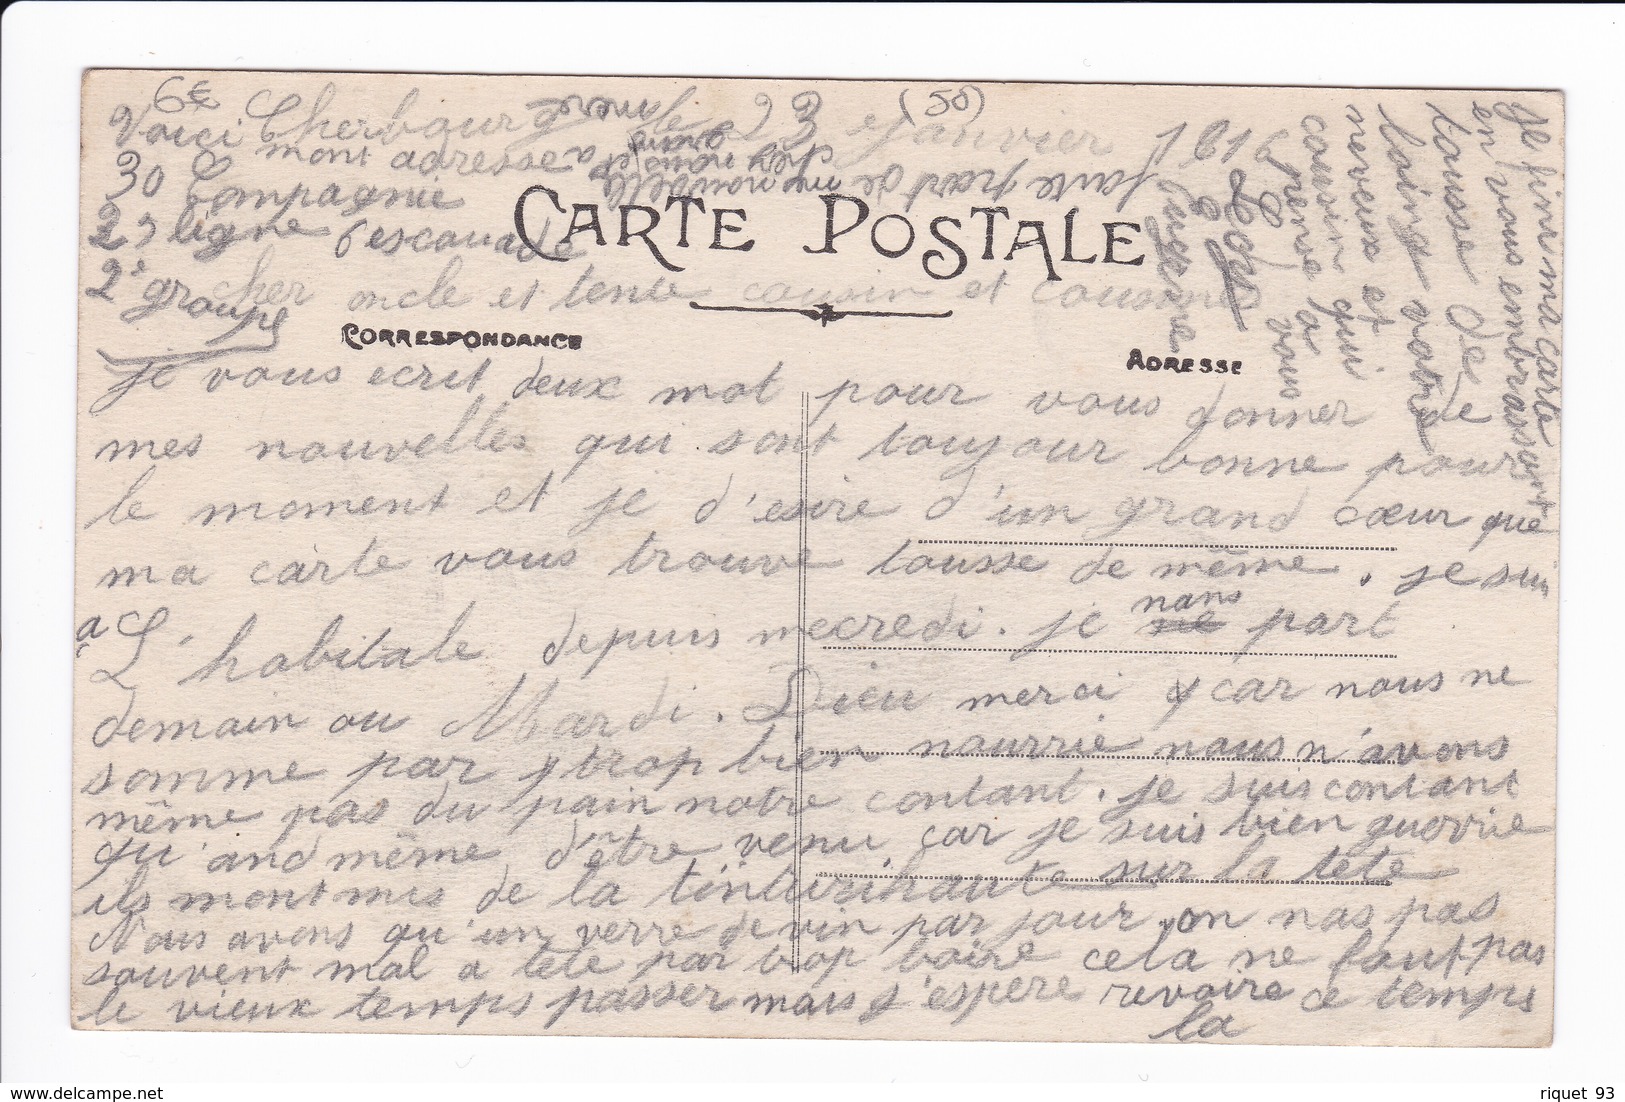 6€
(50)
Cherbourg le 23 Janvier 1916
Voici mont adresse a
30 Compagnie
23 ligne 6 escouade
2e groupe
CARTE POSTALE
cher oncle et tente cousin et cousine
CORRESPONDANCE
ADRESSE
je vous ecrit deux mot pour vous donner de
mes nouvelles qui sont toujour bonne pour
le moment et je d'esire d'un grand cœur que
ma carte vous trouve tousse de même. je suis
a L'habitale depuis mecredi. je nans part
demain ou Mardi. Dieu merci car nous ne
somme par trop bien nourrie nous n'avons
même pas du pain notre contant. je suis contant
qu'and même d'être venu car je suis bien guerrie
ils mont mis de la tinturihaute sur la tete
Nous avons qu'un verre de vin par jour on nas pas
souvent mal a tete par trop boire cela ne faut pas
le vieux temps passer mais j'espere revoire ce temps
la
je fini ma carte
en vous embrassent
tousse de
loing votre
neveux et
cousin qui
pense a vous
faute part de me nouvelle
chez nous et
riquet 93